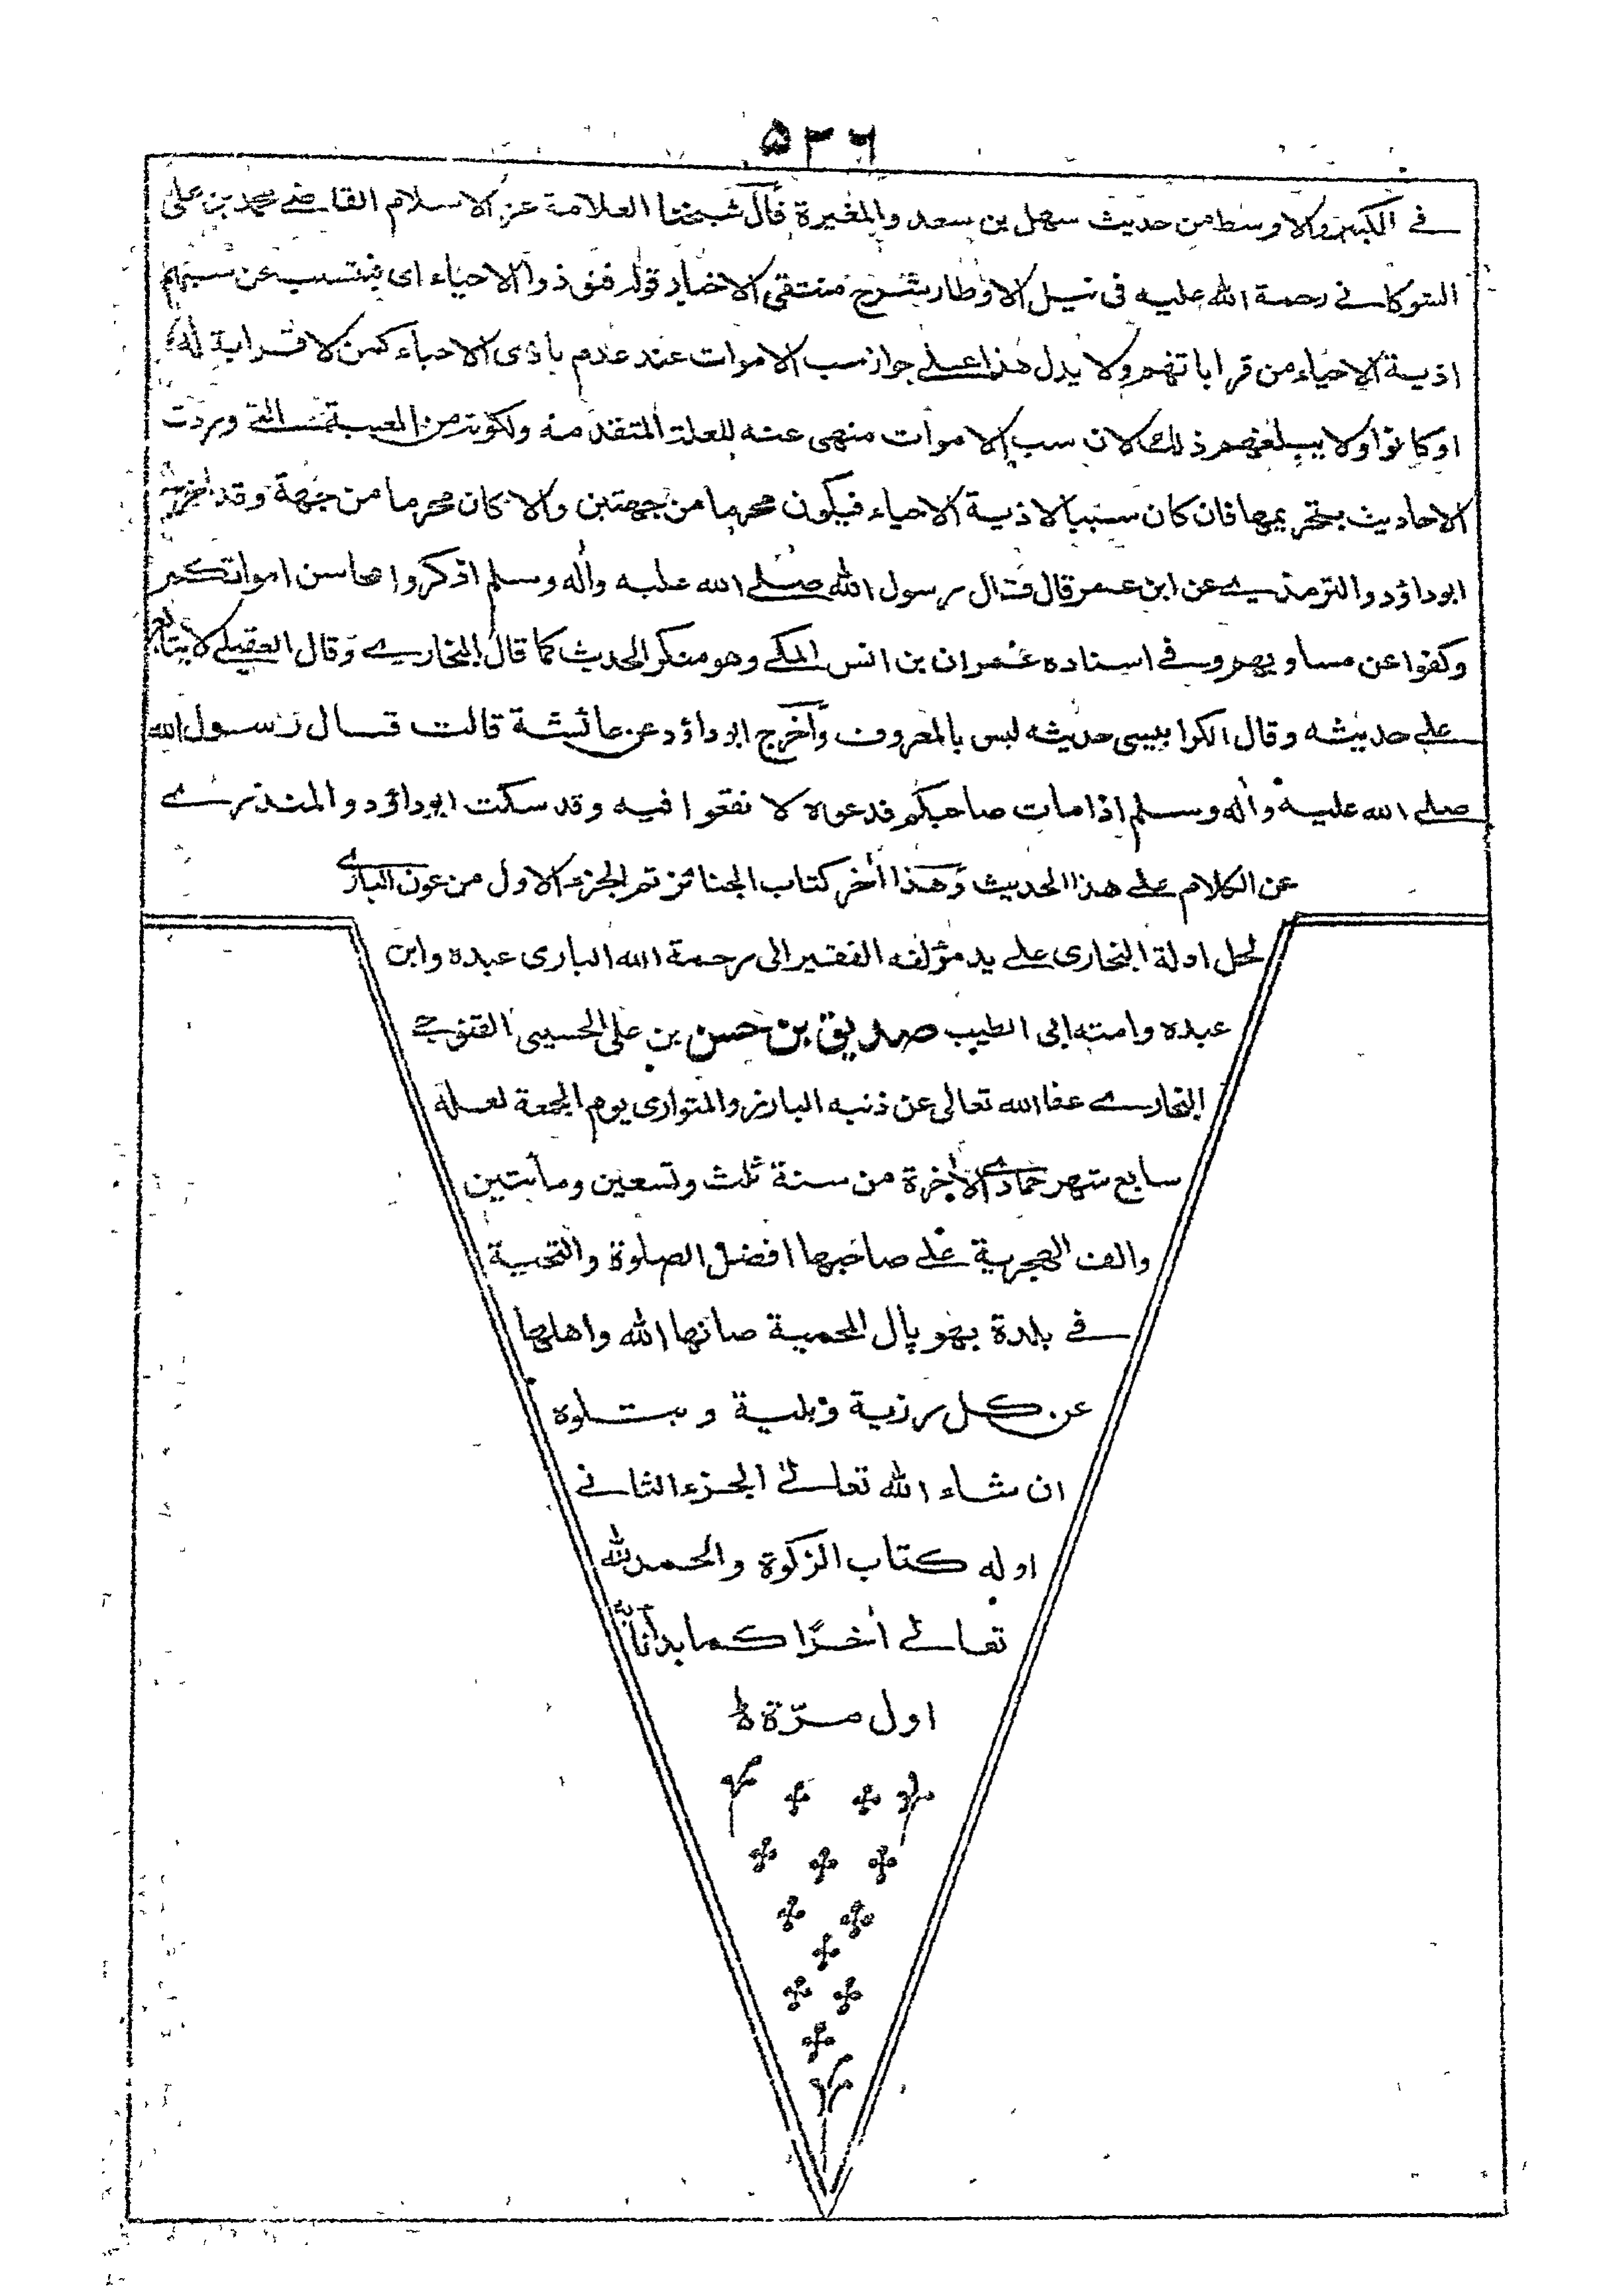 ۵۳۶
في الكبير والاوسط من حديث سهل بن سعد والمغيرة قال شيخنا العلامة عز الاسلام القاضي محمد بن علي
الشوكاني رحمة الله عليه في نيل الاوطار بشرح منتقى الاخبار قوله فتؤذوا الاحياء اي فيتسبب عن سبهم
اذية الاحياء من قراباتهم ولا يدل هذا على جواز سب الاموات عند عدم تاذي الاحياء كمن لا قرابة له
او كانوا ولا يبلغهم ذلك لان سب الاموات منهي عنه للعلة المتقدمة ولكونه من الغيبة التي وردت
الاحاديث بتحريمها فان كان سببا لاذية الاحياء فيكون محرما من جهتين والا كان محرما من جهة وقد اخرج
ابوداؤد والترمذي عن ابن عمر قال قال رسول الله صلى الله عليه وأله وسلم اذكروا محاسن امواتكم
وكفوا عن مساويهم وفي اسناده عمران بن انس المكي وهو منكر الحديث كما قال البخاري وقال العقيلي لا يتابع
على حديثه وقال الكرابيسي حديثه ليس بالمعروف وأخرج ابوداؤد عن عائشة قالت قال رسول الله
صلى الله عليه وأله وسلم اذا مات صاحبكم فدعوه لا تقعوا فيه وقد سكت ابوداؤد والمنذري
عن الكلام على هذا الحديث وهذا أخر كتاب الجنائز تم الجزء الاول من عون الباري
لحل ادلة البخاري على يد مؤلفه الفقير الى رحمة الله الباري عبده وابن
عبده وامته ابي الطيب صديق بن حسن بن علي الحسيني القنوجي
البخاري عفا الله تعالى عن ذنبه البارز والمتواري يوم الجمعة لعله
سابع شهر جمادى الأخرة من سنة ثلث وتسعين ومأتين
والف الهجرية على صاحبها افضل الصلوة والتحية
في بلدة بهوپال المحمية صانها الله واهلها
عن كل رزية وبلية ويتلوه
ان شاء الله تعالى الجزء الثاني
اوله كتاب الزكوة والحمد لله
تعالى أخرًا كما بدأنا
اول مرّة